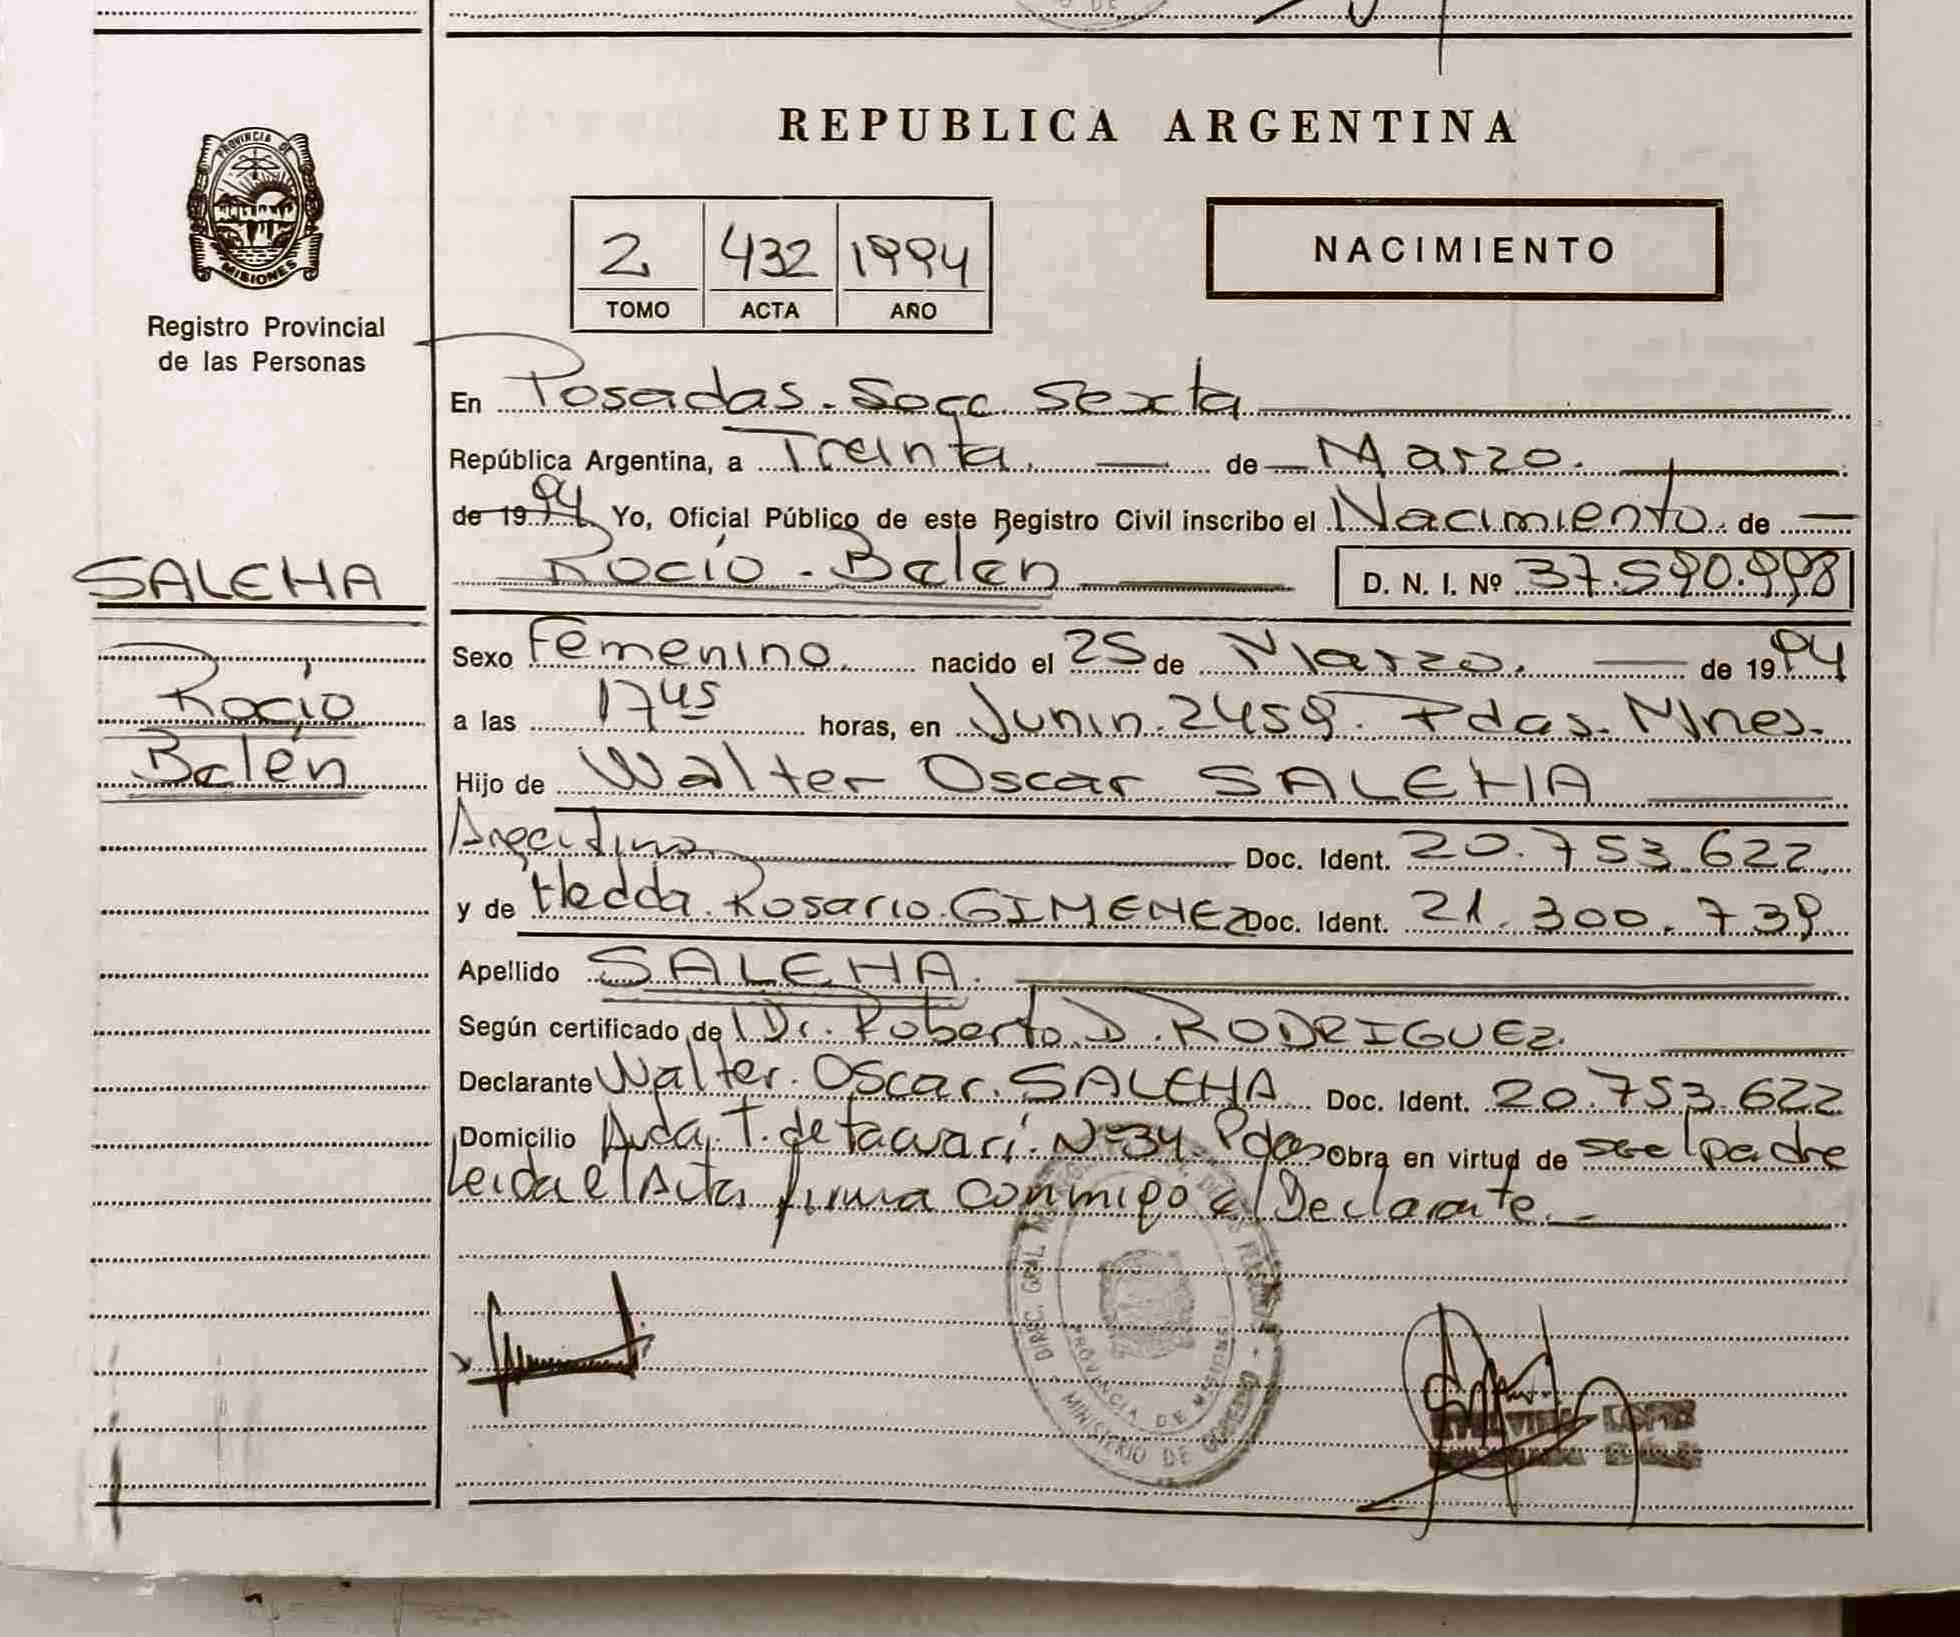 REPUBLICA ARGENTINA
PROVINCIA DE
MISIONES
Registro Provincial
de las Personas
2 432 1994
TOMO ACTA AÑO
NACIMIENTO
En Posadas. Secc. Sexta
República Argentina, a Treinta. de Marzo.
de 1994 Yo, Oficial Público de este Registro Civil inscribo el Nacimiento. de
Rocío - Belén D. N. I. Nº 37.590.998
SALEHA
Rocío
Belén
Sexo Femenino. nacido el 25 de Marzo. de 1994
a las 17 45 horas, en Junin. 2459. Pdas. Mnes.
Hijo de Walter Oscar SALEHA
Argentina Doc. Ident. 20.753.622
y de Hedda. Rosario. GIMENEZ Doc. Ident. 21.300.739
Apellido SALEHA.
Según certificado de Dr. Roberto. D. RODRIGUEZ.
Declarante Walter. Oscar. SALEHA Doc. Ident. 20.753.622
Domicilio Avda. T. de tacuarí. Nº 34. Pdas Obra en virtud de ser el padre
Leida el Acta firma conmigo el Declarante.
PROVINCIA DE MISIONES
MINISTERIO DE GOBIERNO
LOPEZ